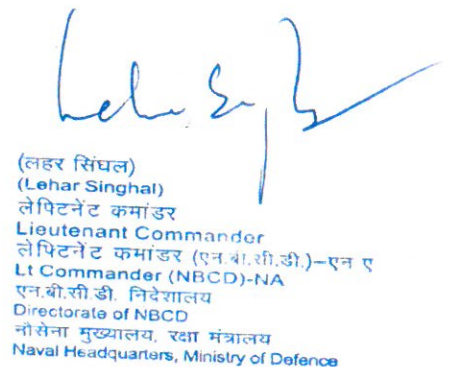 Lehar Singhal
(लहर सिंघल)
(Lehar Singhal)
लेफ्टिनेंट कमांडर
Lieutenant Commander
लेफ्टिनेंट कमांडर (एन.बी.सी.डी.)–एन ए
Lt Commander (NBCD)-NA
एन.बी.सी.डी. निदेशालय
Directorate of NBCD
नौसेना मुख्यालय, रक्षा मंत्रालय
Naval Headquarters, Ministry of Defence